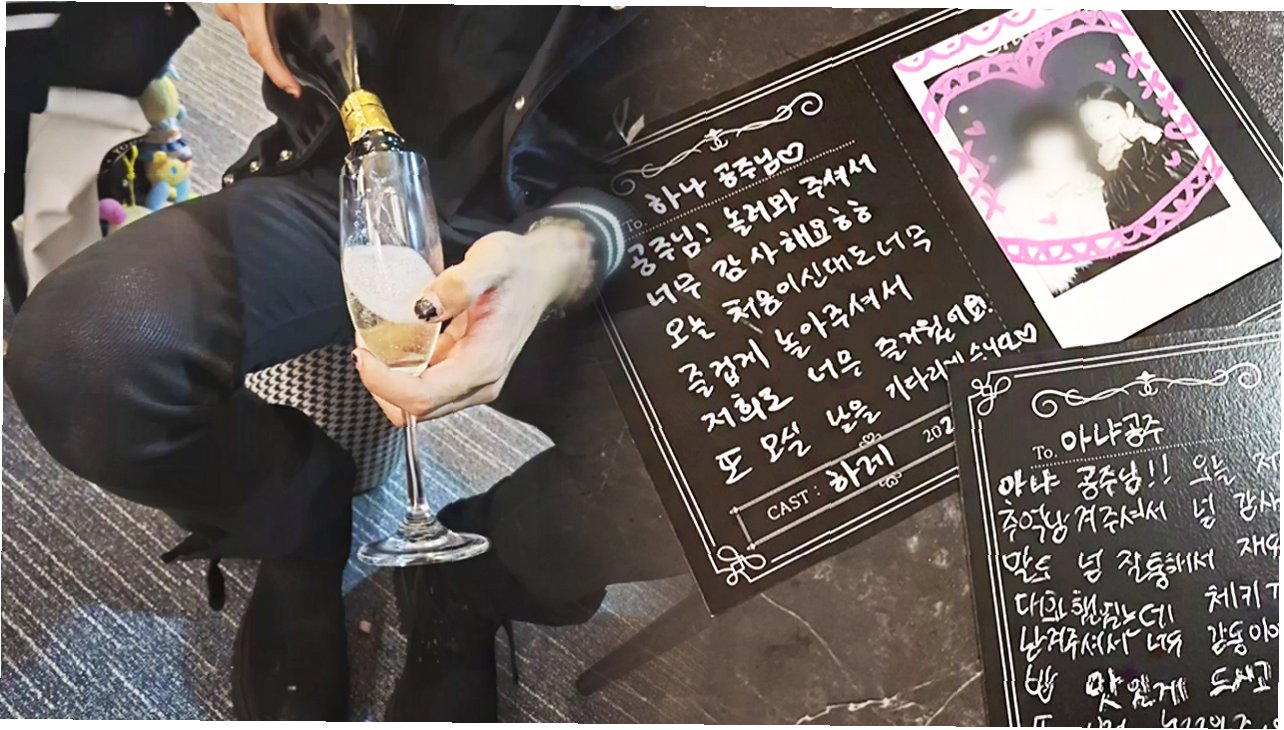 To. 하나 공주님♡
공주님! 놀러와 주셔서
너무 감사해요ㅎㅎ
오늘 처음이신대도 너무
즐겁게 놀아주셔서
저희도 너무 즐거웠어요!
또 오실 날을 기다리께스니다♡
202
CAST : 하레
To. 아냐공주
아냐 공주님!! 오늘 저
추억남겨주셔서 넘 감사
말도 넘 잘통해서 재
대화했는데 체키
남겨주셔서 너무 감동이
밥 맛있게 드시고
또